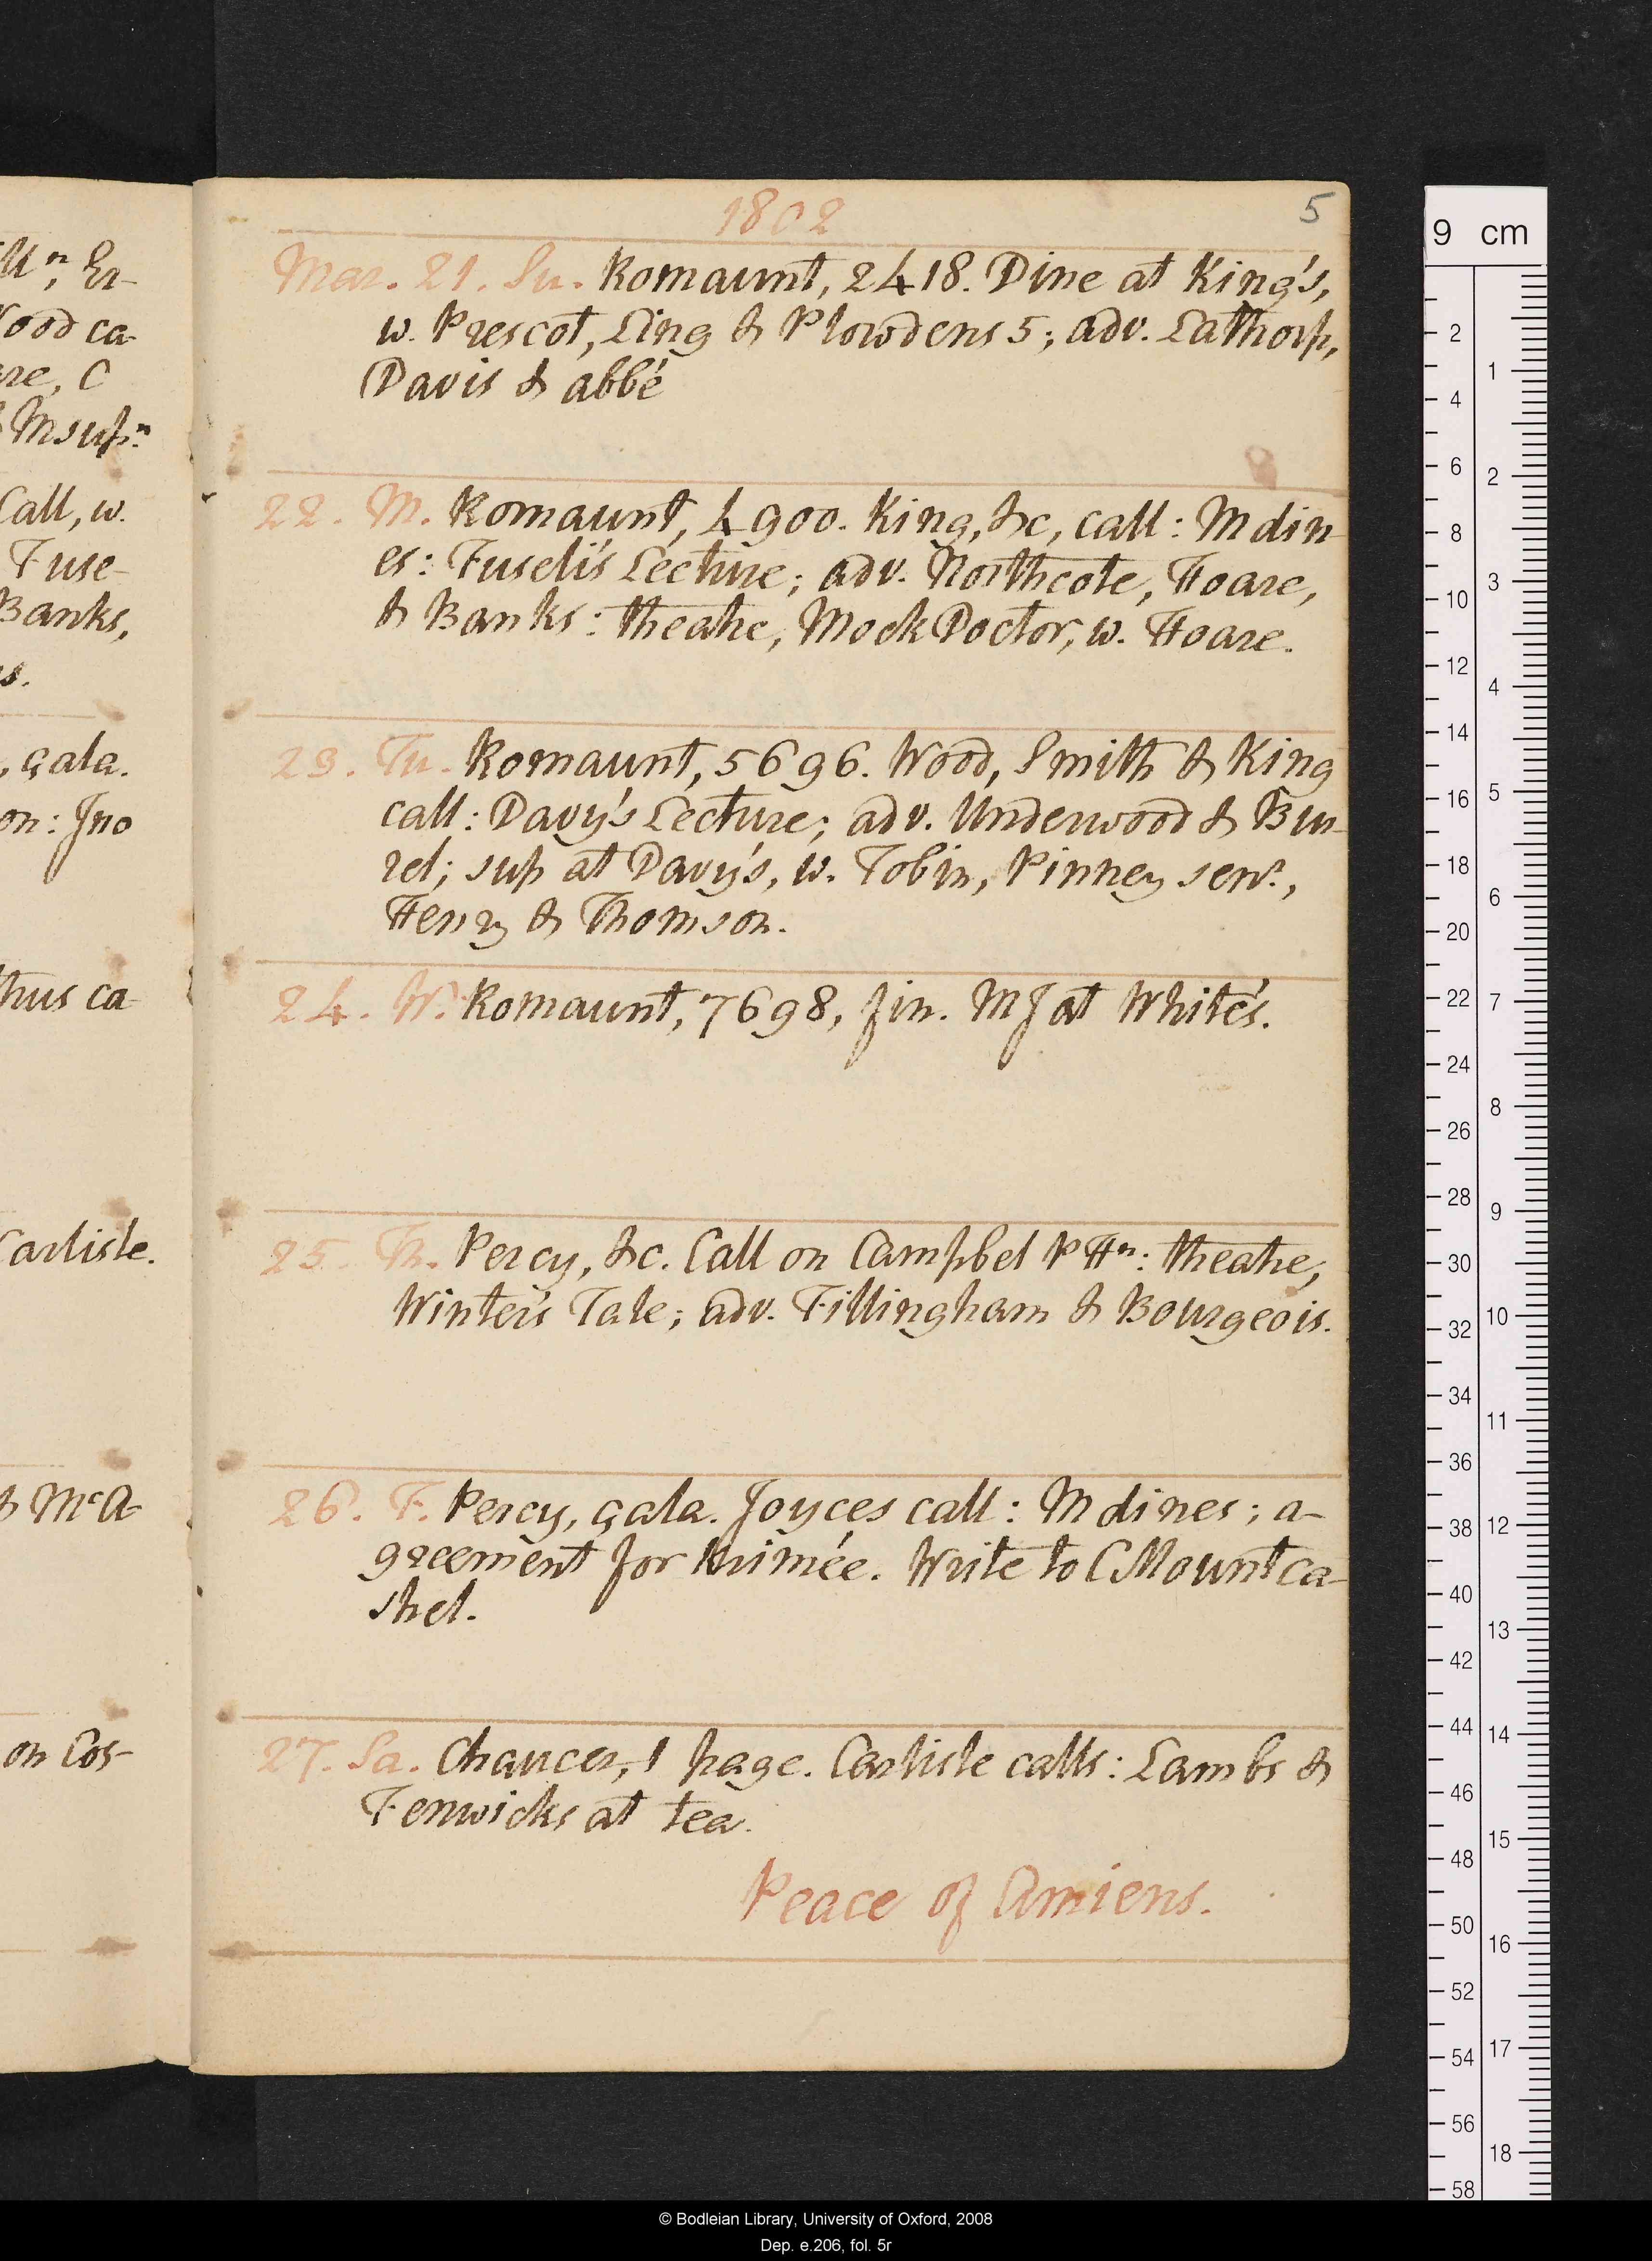 Mn; Er-
Wood ca-
are, C
Msupn
Call, w.
Fuse-
Banks,
s.
, gala.
on: Jno
thus ca-
Carlisle.
& McA-
on Cos-
1802
5
Mar. 21. Su. Romaunt, 2418. Dine at King's,
w. Prescot, Ling & Plowdens 5; adv. Lathorp,
Davis & abbé
22. M. Romaunt, 4900. King, &c, call: M din-
es: Fuseli's Lecture; adv. Northcote, Hoare,
& Banks: theatre, Mock Doctor, w. Hoare.
23. Tu. Romaunt, 5696. Wood, Smith & King
call: Davy's Lecture; adv. Underwood & Bur-
rel; sup at Davy's, w. Tobin, Pinney senr.,
Henry & Thomson.
24. W. Romaunt, 7698, fin. MJ at White's.
25. Th. Percy, &c. Call on Campbel & Hn: theatre,
Winter's Tale; adv. Fillingham & Bourgeois.
26. F. Percy, çala. Joyces call: M dines; a-
greement for Krimée. Write to C Mountca-
shel.
27. Sa. Chaucer, 1 page. Carlisle calls: Lambs &
Fenwicks at tea.
Peace of Amiens.
9 cm
2
4
6
8
10
12
14
16
18
20
22
24
26
28
30
32
34
36
38
40
42
44
46
48
50
52
54
56
58
1
2
3
4
5
6
7
8
9
10
11
12
13
14
15
16
17
18
© Bodleian Library, University of Oxford, 2008
Dep. e.206, fol. 5r